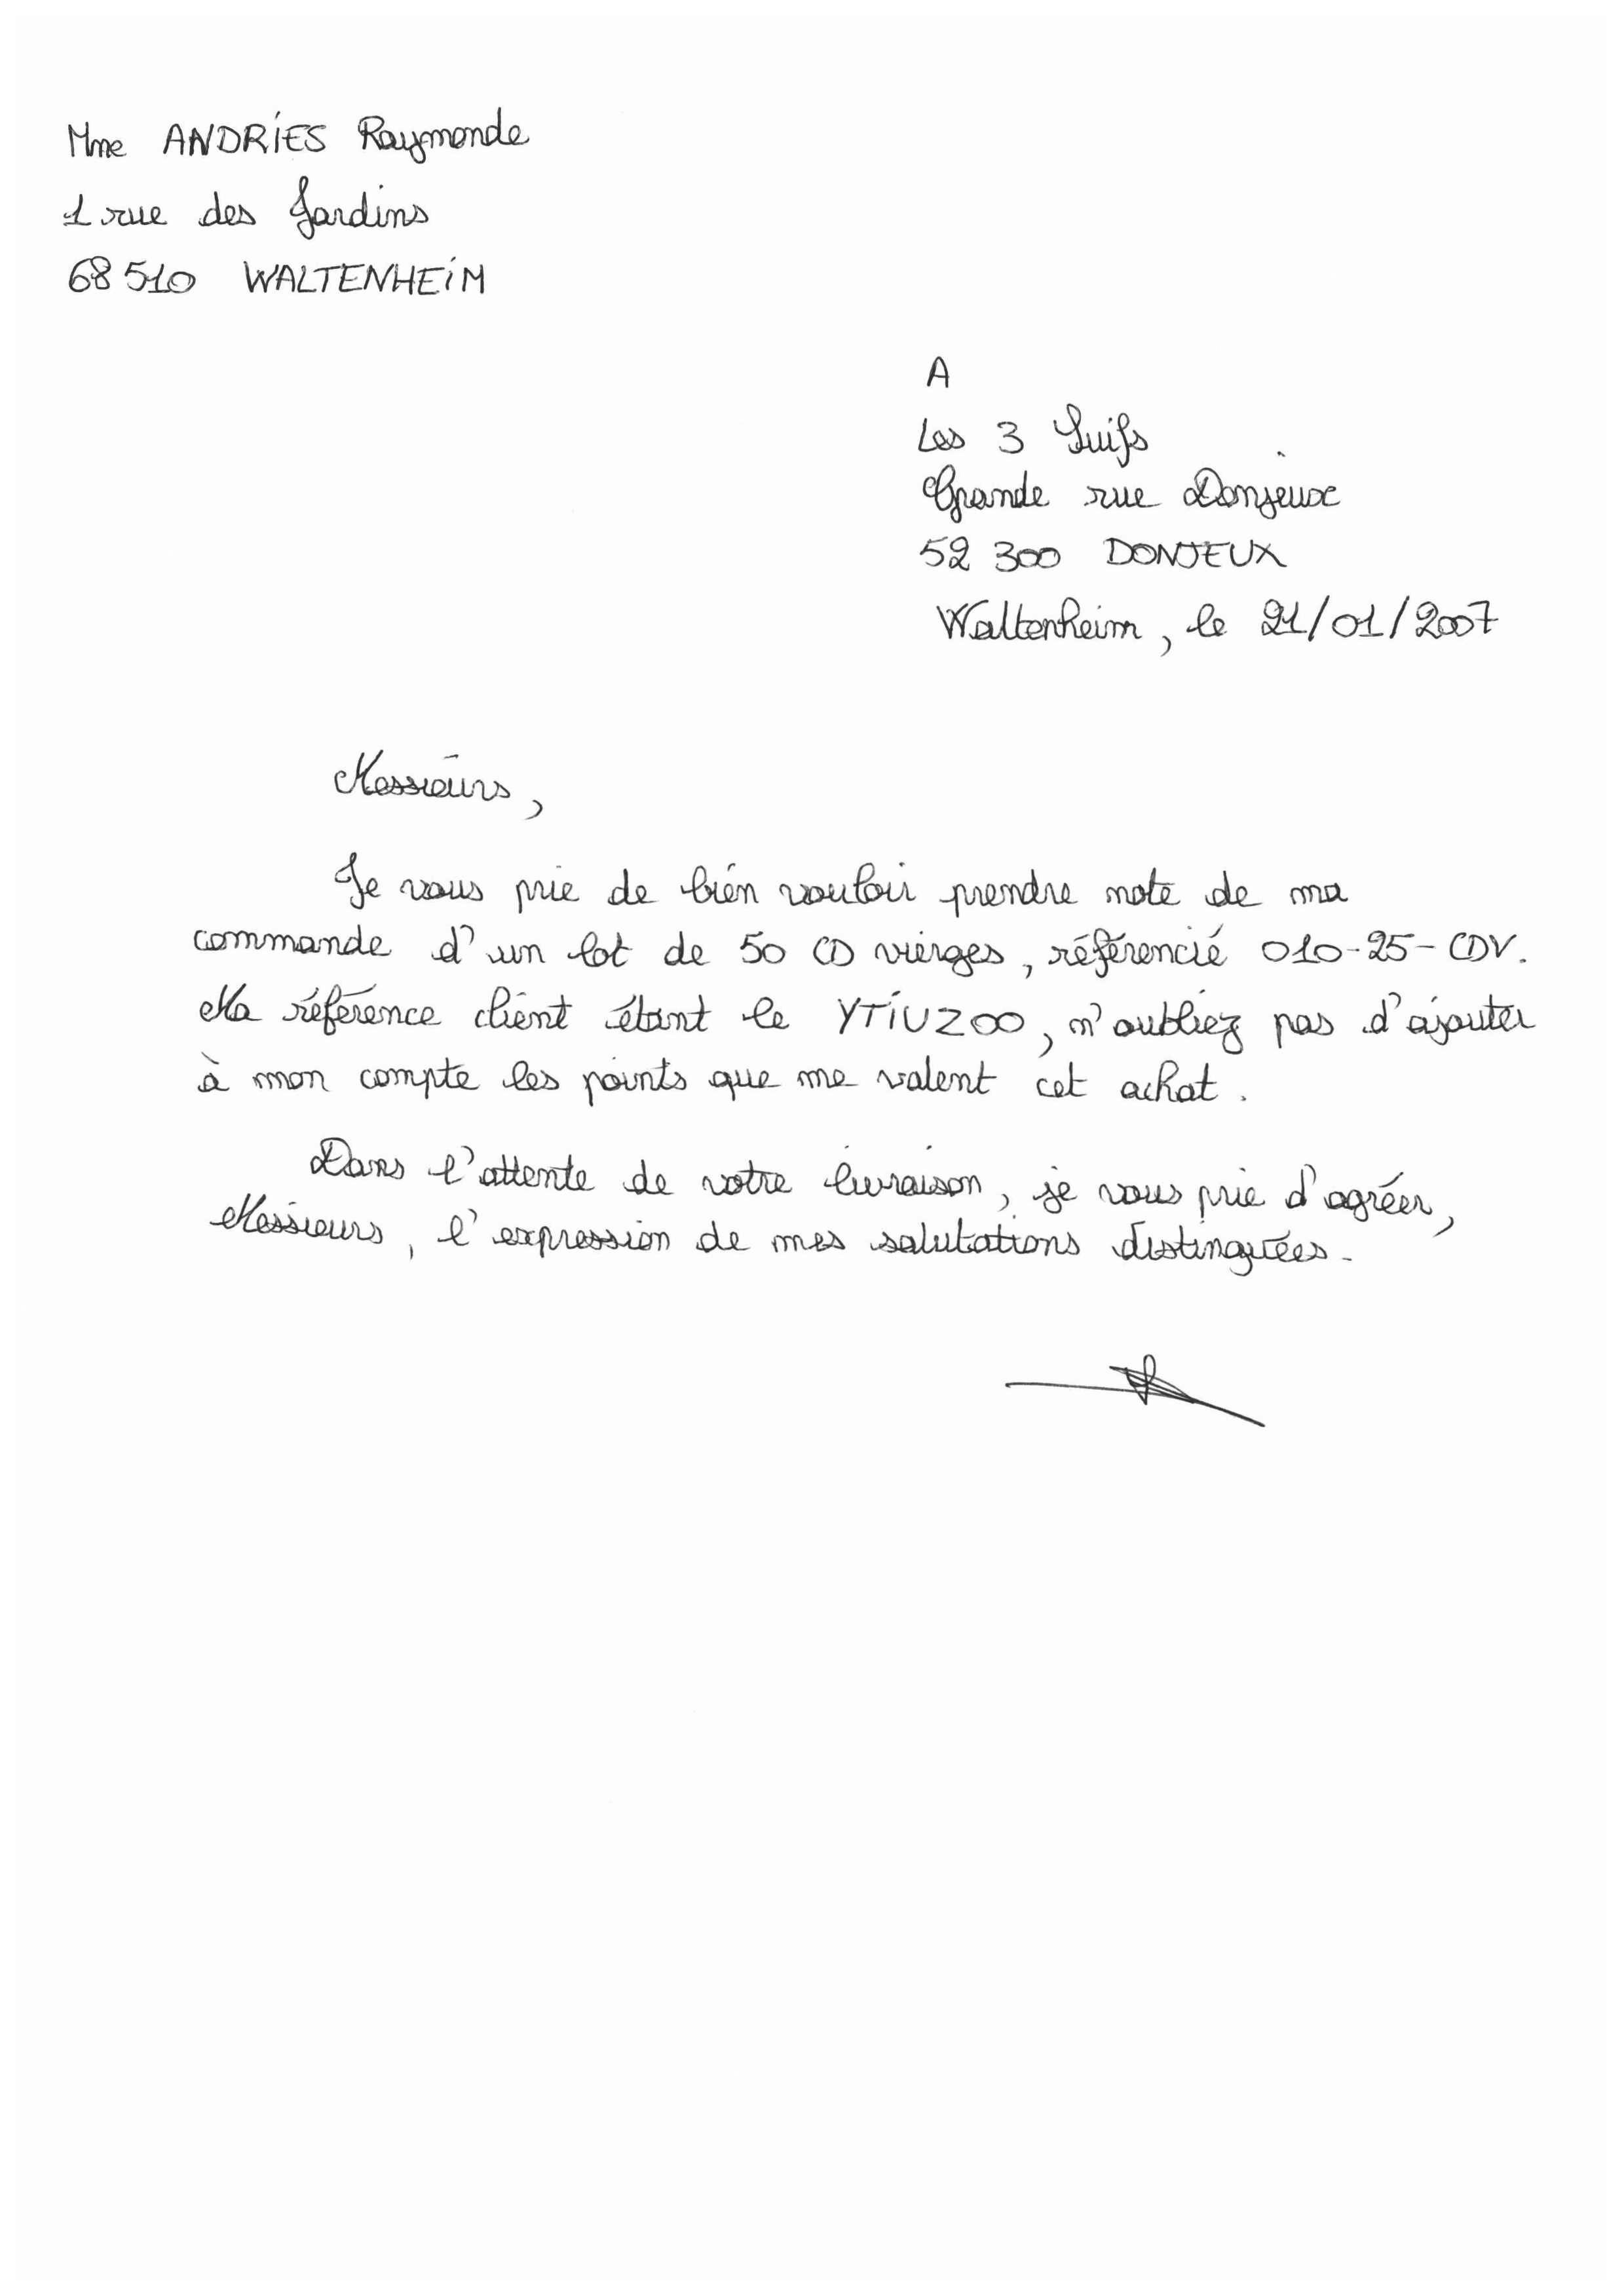 Mme ANDRIES Raymonde
1 rue des Jardins
68 510 WALTENHEIM
A
Les 3 Suifs
Grande rue Donjeux
52 300 DONJEUX
Waltenheim, le 21/01/2007
Messieurs,
Je vous prie de bien vouloir prendre note de ma
commande d'un lot de 50 CD vierges, référencié 010-25-CDV.
Ma référence client étant le YTIUZOO, n'oubliez pas d'ajouter
à mon compte les points que me valent cet achat.
Dans l'attente de votre livraison, je vous prie d'agréer,
Messieurs, l'expression de mes salutations distinguées.